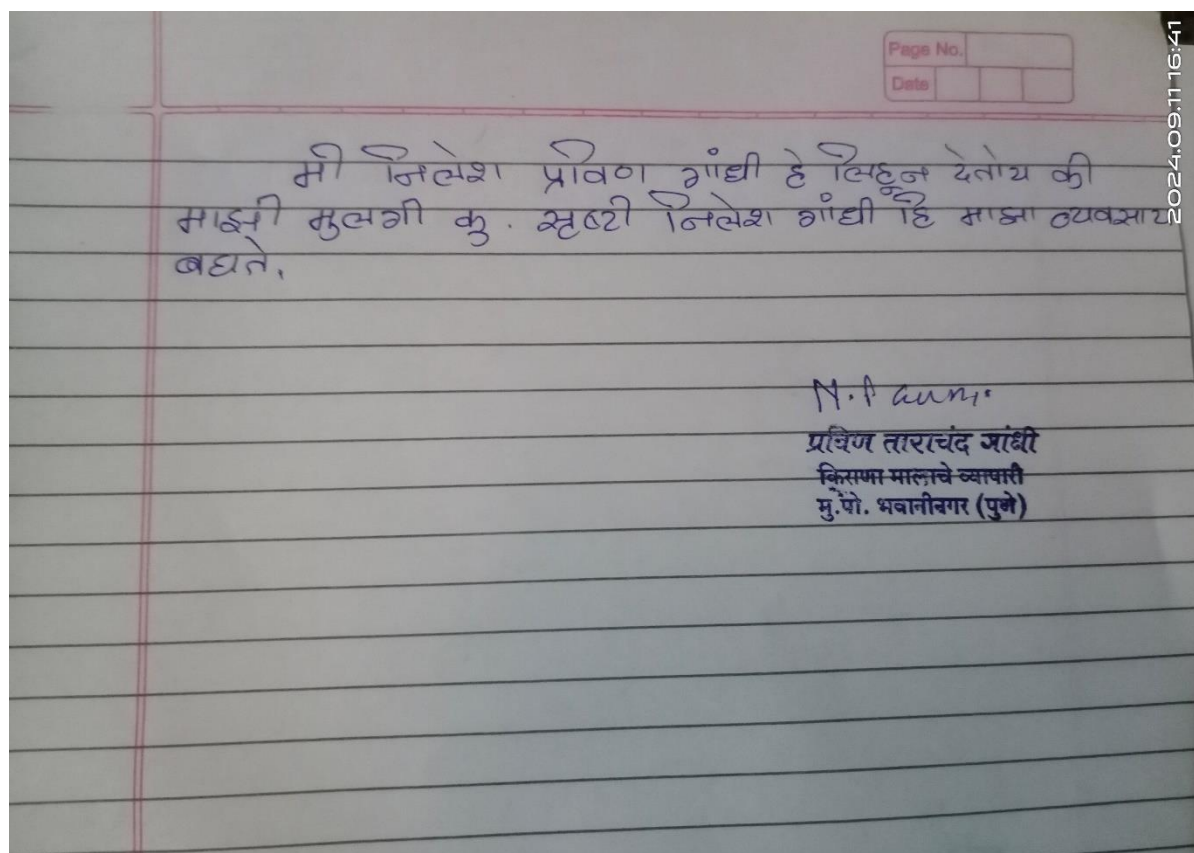 Page No.
Date
2024.09.11 16:41
मी निलेश प्रविण गांधी हे लिहून देतोय की
माझी मुलगी कु. सृष्टी निलेश गांधी हि माझा व्यवसाय
बघते.
प्रविण ताराचंद गांधी
किराणा मालाचे व्यापारी
मु.पो. भवानीनगर (पुणे)